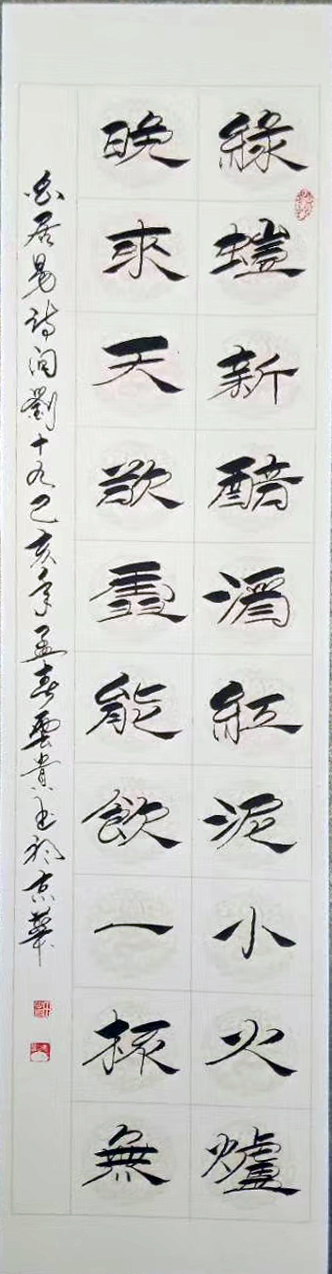 綠螘新醅酒紅泥小火爐
晚來天欲雪能飲一杯無
白居易诗问劉十九己亥年孟春雲貴於京華